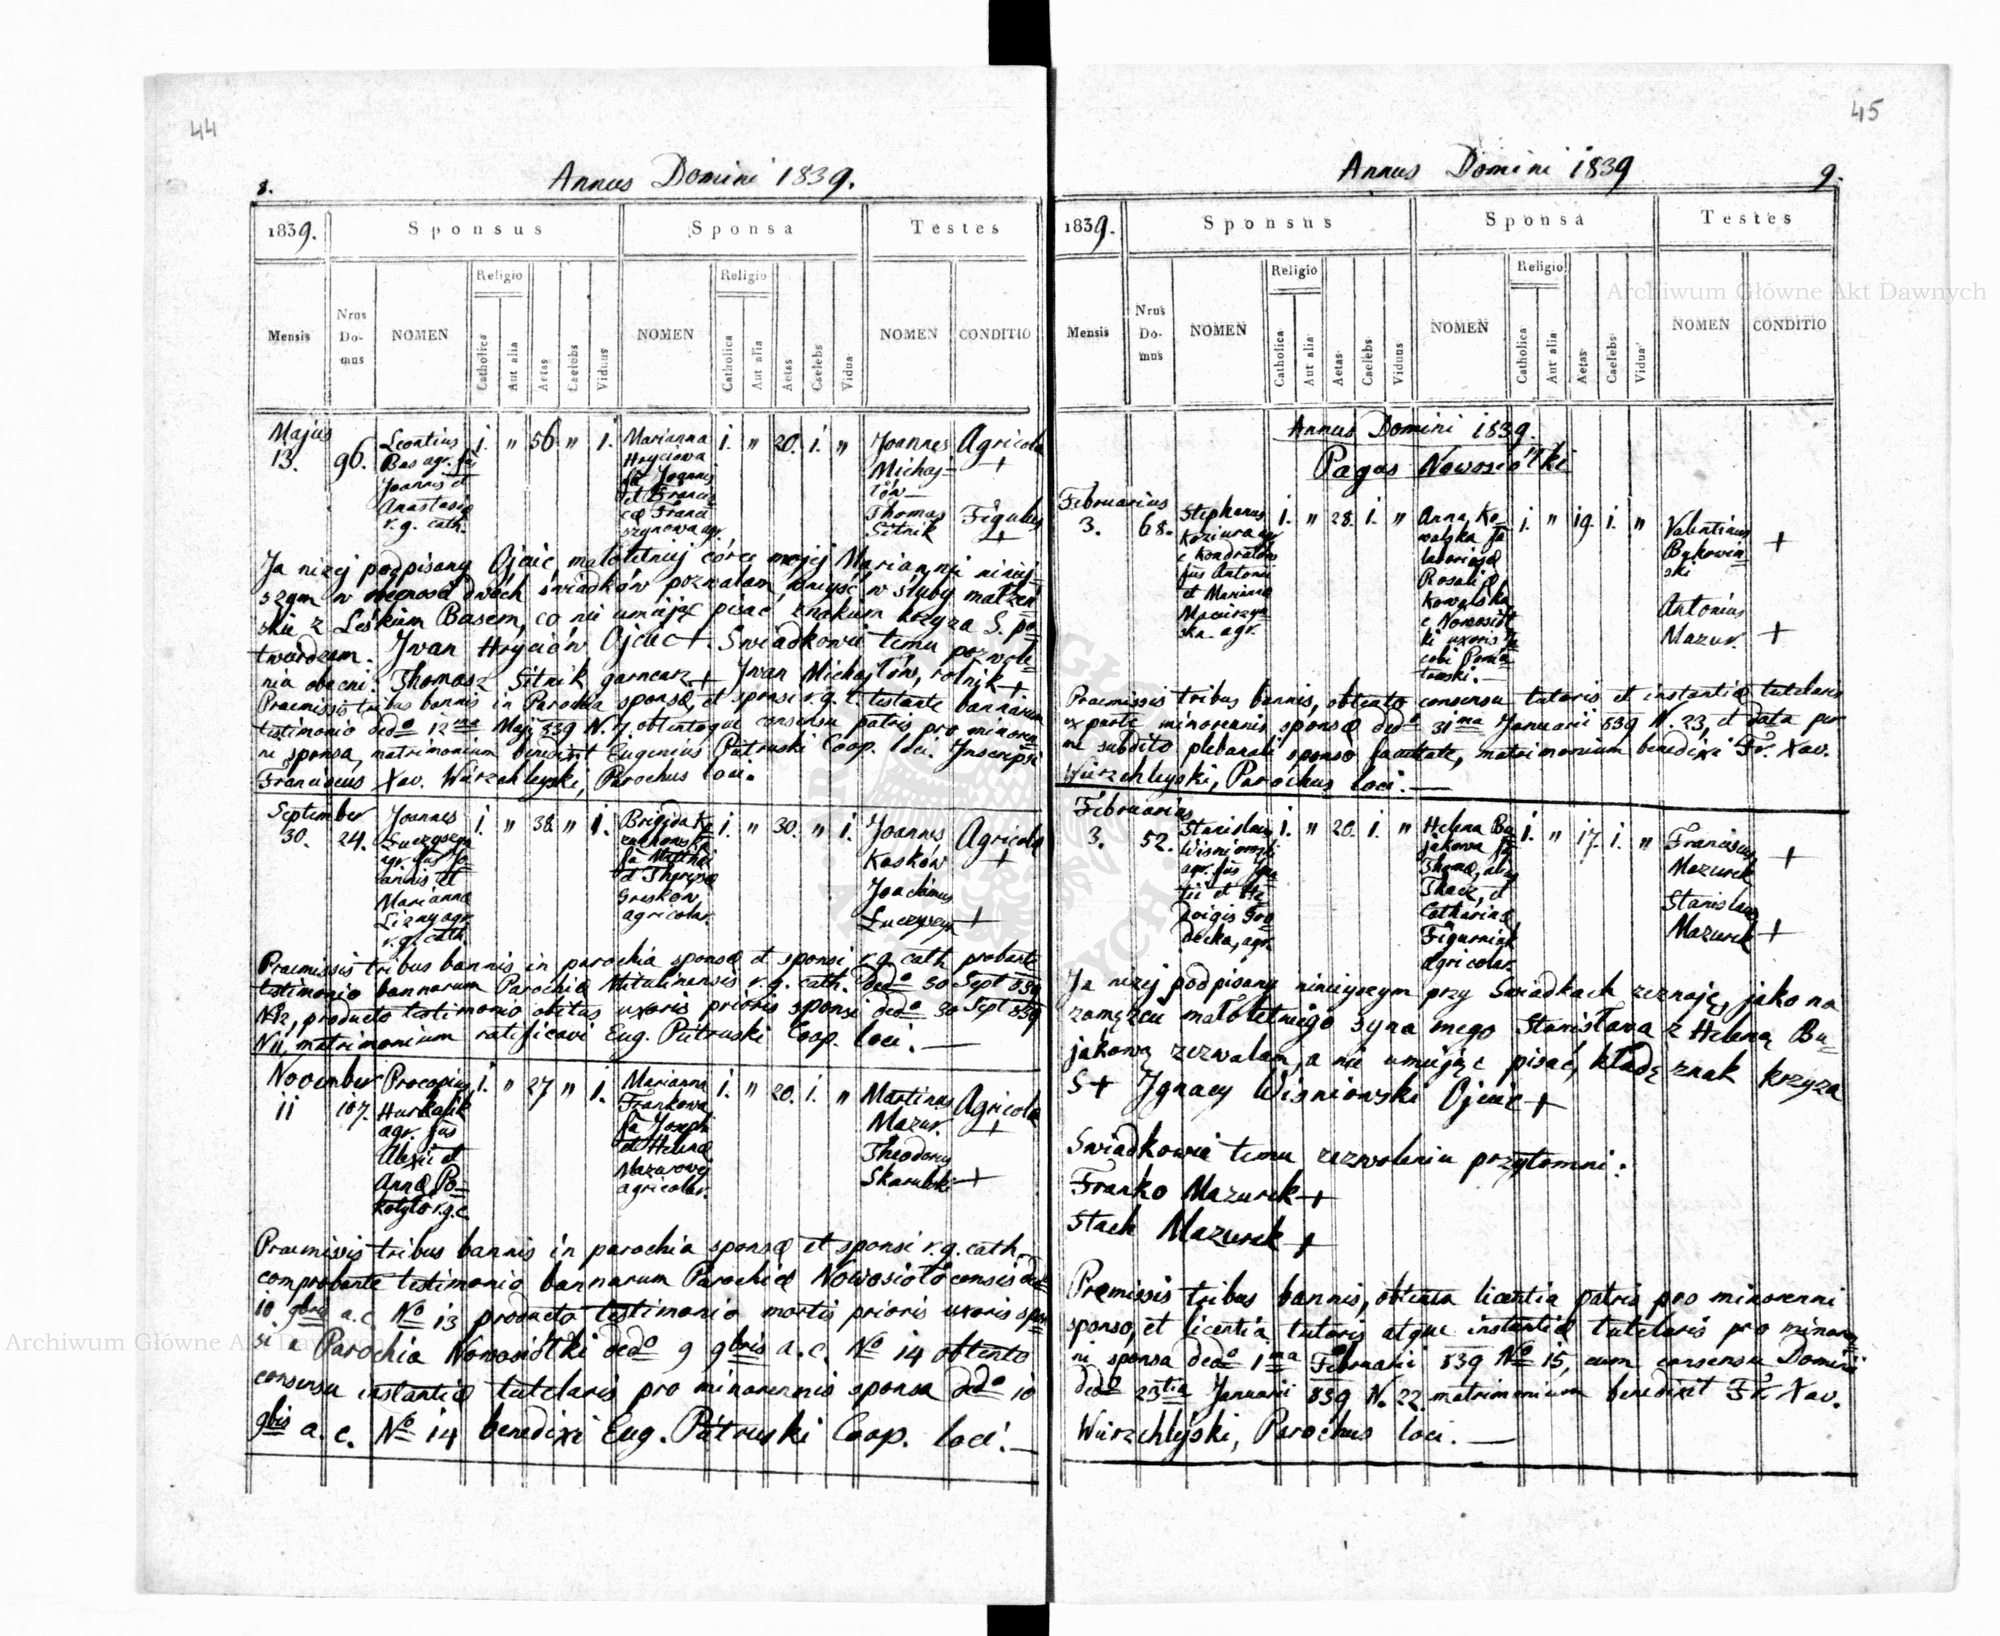 44
8.
Annus Domini 1839.
1839.
Sponsus
Sponsa
Testes
Mensis
Nrus Do- mus
NOMEN
Religio
Catholica
Aut alia
Aetas
Caelebs
Viduus
NOMEN
Religio
Catholica
Aut alia
Aetas
Caelebs
Vidua
NOMEN
CONDITIO
Majus
13.
96.
Leontius
Bas agr. fus
Joannis et
Anastasiæ
r. g. cath.
i. " 56 " i.
Marianna
Hryciowa
fa Joannis
et Francis
cæ Franci
szynowa agr.
i. " 20. i. "
Joannes
Michaj-
łów
Thomas
Sitnik
Agricola
+
Figulus
+
Ja niżej podpisany Ojciec małoletniej córce mojej Mariannie niniej-
szym w obecności dwóch świadków pozwalam wnijść w śluby małżeń
skie z Leśkiem Basem, co nie umiejąc pisać znakiem krzyża S. po-
twierdzam. Jwan Hryciów Ojciec +. Swiadkowie temu pozwole-
nia obecni. Thomasz Sitnik garncarz + Jwan Michajłów, rolnik +
Praemissis tribus bannis in Parochia sponsæ, et sponsi r. g. c. testante bannorum
testimonio ded⁰ 12ma Maji 839 N. 7. obtentoque consensu patris pro minoren
ni sponsa, matrimonium benedixit Eugenius Pietruski Coop. loci. Inscripsi
Franciscus Xav. Würzchleyski, Parochus loci.
September
30.
24.
Joannes
Łuczyszyn
agr. fus Jo
annis et
Marianna
Lizny agr.
r. g. cath.
i. " 38. " i.
Brigida Ko
fa Matthæi
et Theresiæ
Greskow
agricolar.
i. " 30. " i.
Joannes
Kosków
Joachimus
Łuczyszyn
Agricola
+
+
Praemissis tribus bannis in parochia sponsæ et sponsi r. g. cath probante
testimonio bannorum Parochiæ Mitulinensis r. g. cath. ded⁰ 30 Sept 839
N12, producto testimonio obitus uxoris prioris sponsi ded⁰ 30 Sept 839
N11, matrimonium ratificavi Eug. Pietruski Coop. loci.
November
11
107.
Procopius
Hurkajik
agr. fus
Alexii et
Annæ Po-
kotyło r. g. c.
i. " 27 " i.
Marianna
Frankowa
fa Josephi
et Helenæ
Mazurowej
agricolar.
i. " 20. i. "
Martinus
Mazur.
Theodorus
Skarulski
Agricola
+
+
Praemissis tribus bannis in parochia sponsæ et sponsi r. g. cath.
comprobante testimonio bannorum Parochiæ Nowosiołocensis ded⁰
10 9bris a. c. No 13 producto testimonio mortis prioris uxoris spon
si e Parochia Nowosiółki ded⁰ 9 9bris a. c. No 14 obtento
consensu instantiæ tutelaris pro minorennis sponsa ded⁰ 10
9bis a. c. No 14 benedixi Eug. Pietruski Coop. loci.
45
Annus Domini 1839
9.
1839.
Sponsus
Sponsa
Testes
Mensis
Nrus Do- mus
NOMEN
Religio
Catholica
Aut alia
Aetas
Caelebs
Viduus
NOMEN
Religio
Catholica
Aut alia
Aetas
Caelebs
Vidua
NOMEN
CONDITIO
Annus Domini 1839.
Pagus Nowosiółki
Februarius
3.
68.
Stephanus
Koziura agr
e Kondratów
fus Antonii
et Marianna
Maciirzyń
ska agr.
i. " 28. i. "
Anna Ko-
walska fa
laboriosæ
Rosaliæ
Kowalska
e Nowosiół
ki uxoris Ja
cobi Ponia
towski.
i. " 19. i. "
Valentinus
Bykowiń
ski
Antonius
Mazur.
+
+
Praemissis tribus bannis, obtento consensu tutoris et instantiæ tutelaris
ex parte minorennis sponsæ ded⁰ 31ma Januarii 839 N. 23, et data per
me subdito plebanali sponso facultate, matrimonium benedixi Fr. Xav.
Würzchleyski, Parochus loci.
Februarius
3.
52.
Stanislaus
Wiśniowski
agr. fus Igna
tii et He
dvigis Gro
decka, agr.
i. " 20. i. "
Helena Bu
jakowa fa
Thomæ, alias
Tkacz, et
Catharinæ
Figurniak
agricolar.
i. " 17. i. "
Franciscus
Mazurek
Stanislaus
Mazurek
+
+
Ja niżej podpisany niniejszym przy Swiadkach zeznaję, jako na
zamęzcie małoletniego syna mego Stanisława z Heleną Bu-
jakową zezwalam, a nie umiejąc pisać, kładę znak krzyża
S+ Jgnacy Wiśniowski Ojciec +
Swiadkowie temu zezwoleniu przytomni:
Franko Mazurek +
Stach Mazurek +
Præmissis tribus bannis, obtenta licentia patris pro minorenni
sponso, et licentia tutoris atque instantiæ tutelaris pro minoren
ni sponsa ded⁰ 1ma Februarii 839 No 15, cum consensu Dominii
ded⁰ 23tia Januarii 839 N. 22. matrimonium benedixit Fr. Xav.
Würzchleyski, Parochus loci.
Archiwum Główne Akt Dawnych
Archiwum Główne Akt Dawnych